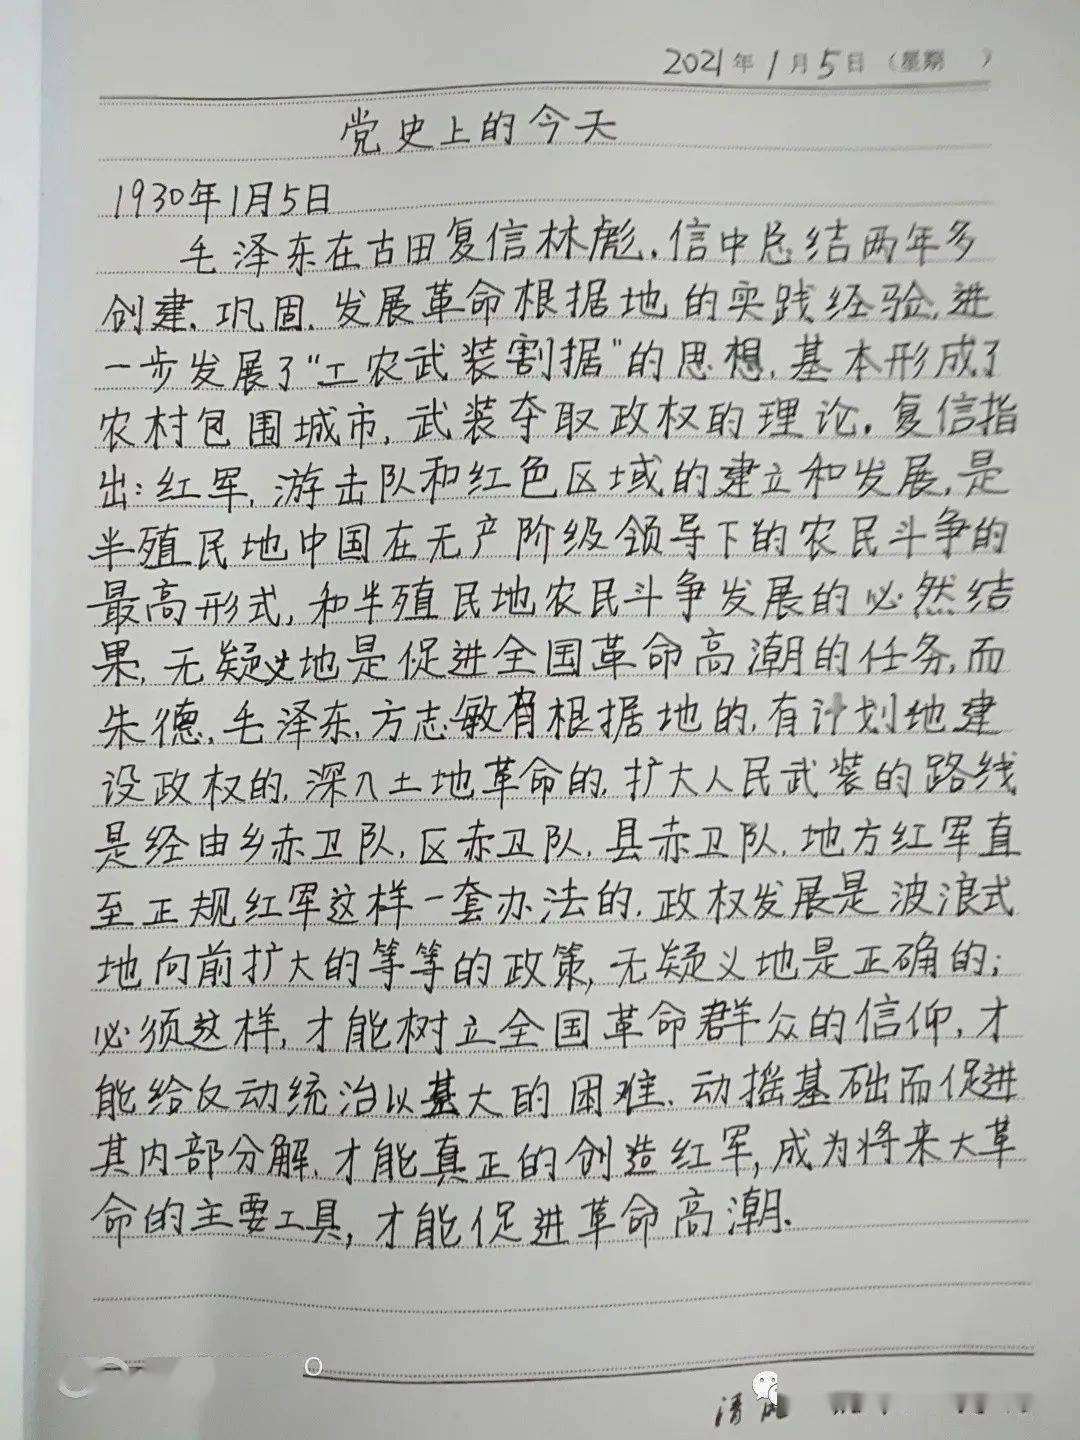 2021年1月5日（星期　）
党史上的今天
1930年1月5日
毛泽东在古田复信林彪.信中总结两年多
创建.巩固.发展革命根据地的实践经验,进
一步发展了“工农武装割据”的思想.基本形成了
农村包围城市,武装夺取政权的理论.复信指
出:红军,游击队和红色区域的建立和发展,是
半殖民地中国在无产阶级领导下的农民斗争的
最高形式,和半殖民地农民斗争发展的必然结
果,无疑义地是促进全国革命高潮的任务,而
朱德,毛泽东,方志敏有根据地的,有计划地建
设政权的,深入土地革命的,扩大人民武装的路线
是经由乡赤卫队,区赤卫队,县赤卫队,地方红军直
至正规红军这样一套办法的,政权发展是波浪式
地向前扩大的等等的政策,无疑义地是正确的;
必须这样,才能树立全国革命群众的信仰,才
能给反动统治以甚大的困难.动摇基础而促进
其内部分解.才能真正的创造红军,成为将来大革
命的主要工具,才能促进革命高潮.
清风